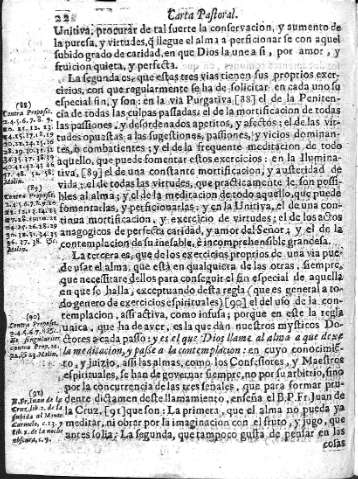 22 Carta Pastoral.
Unitiva, procurar de tal suerte la conservacion, y aumento de
la puresa, y virtudes, q̃ llegue el alma a perficionarse con aquel
subido grado de caridad, en que Dios la une a si, por amor, y
fruicion quieta, y perfecta.
La segunda es, que estas tres vias tienen sus proprios exer-
cicios, con que regularmente se ha de solicitar en cada uno su
especial fin, y son: en la via Purgativa [88] el de la Peniten-
cia de todas las culpas passadas; el de la mortificacion de todas
las passiones, y desordenados apetitos, y afectos; el de las vir-
tudes opuestas a las sugestiones, passiones, y vicios dominan-
tes, ò combatientes; y el de la frequente meditacion de todo
aquello, que puede fomentar estos exercicios: en la Ilumina-
tiva, [89] el de una constante mortificacion, y austeridad de
vida; el de todas las virtudes, que practicamente le son possi-
bles al alma; y el de la meditacion de todo aquello, que puede
fomentarlas, y perficionarlas: y en la Unitiva, el de una con-
tinua mortificacion, y exercicio de virtudes; el de los actos
anagogicos de perfecta caridad, y amor del Señor; y el de la
contemplacion de su inefable, è incomprehensible grandesa.
La tercera es, que de los exercicios proprios de una via pue-
de usar el alma, que està en qualquiera de las otras, siempre,
que necessitare dellos para conseguir el fin especial de aquella
en que se halla; exceptuando desta regla (que es general a to-
do genero de exercicios espirituales) [90] el del uso de la con-
templacion, assi activa, como infusa; porque en este la regla
unica, que ha de aver, es la que dàn nuestros mysticos Do-
ctores a cada passo: y es el que Dios llame al alma a que dexe
la meditacion, y passe a la contemplacion: en cuyo conocimiẽ-
to, y juizio, assi las almas, como los Confessores, y Maestros
espirituales, se han de governar siempre, no por su arbitrio, sino
por la concurrencia de las tres señales, que para formar pru-
dente dictamen deste llamamiento, enseña el B.P.Fr. Juan de
la Cruz, [91] que son: La primera, que el alma no pueda ya
meditar, ni obrar por la imaginacion con el fruto, y jugo, que
antes solia: La segunda, que tampoco gusta de pensar en las
cosas
(88)
Contra Proposit.
(89)
Contra Proposit.
Molin.
(90)
Contra Proposit.
Molin.
(91)
B. Fr. Juan de la
Cruz, lib. 2. de la
subida al Monte
Carmelo, c. 13. y
lib. 1. de la noche
obscura, c. 9.